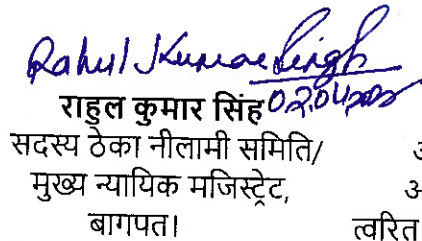 Rahul Kumar Singh
राहुल कुमार सिंह
सदस्य ठेका नीलामी समिति/
मुख्य न्यायिक मजिस्ट्रेट,
बागपत।
त्वरित